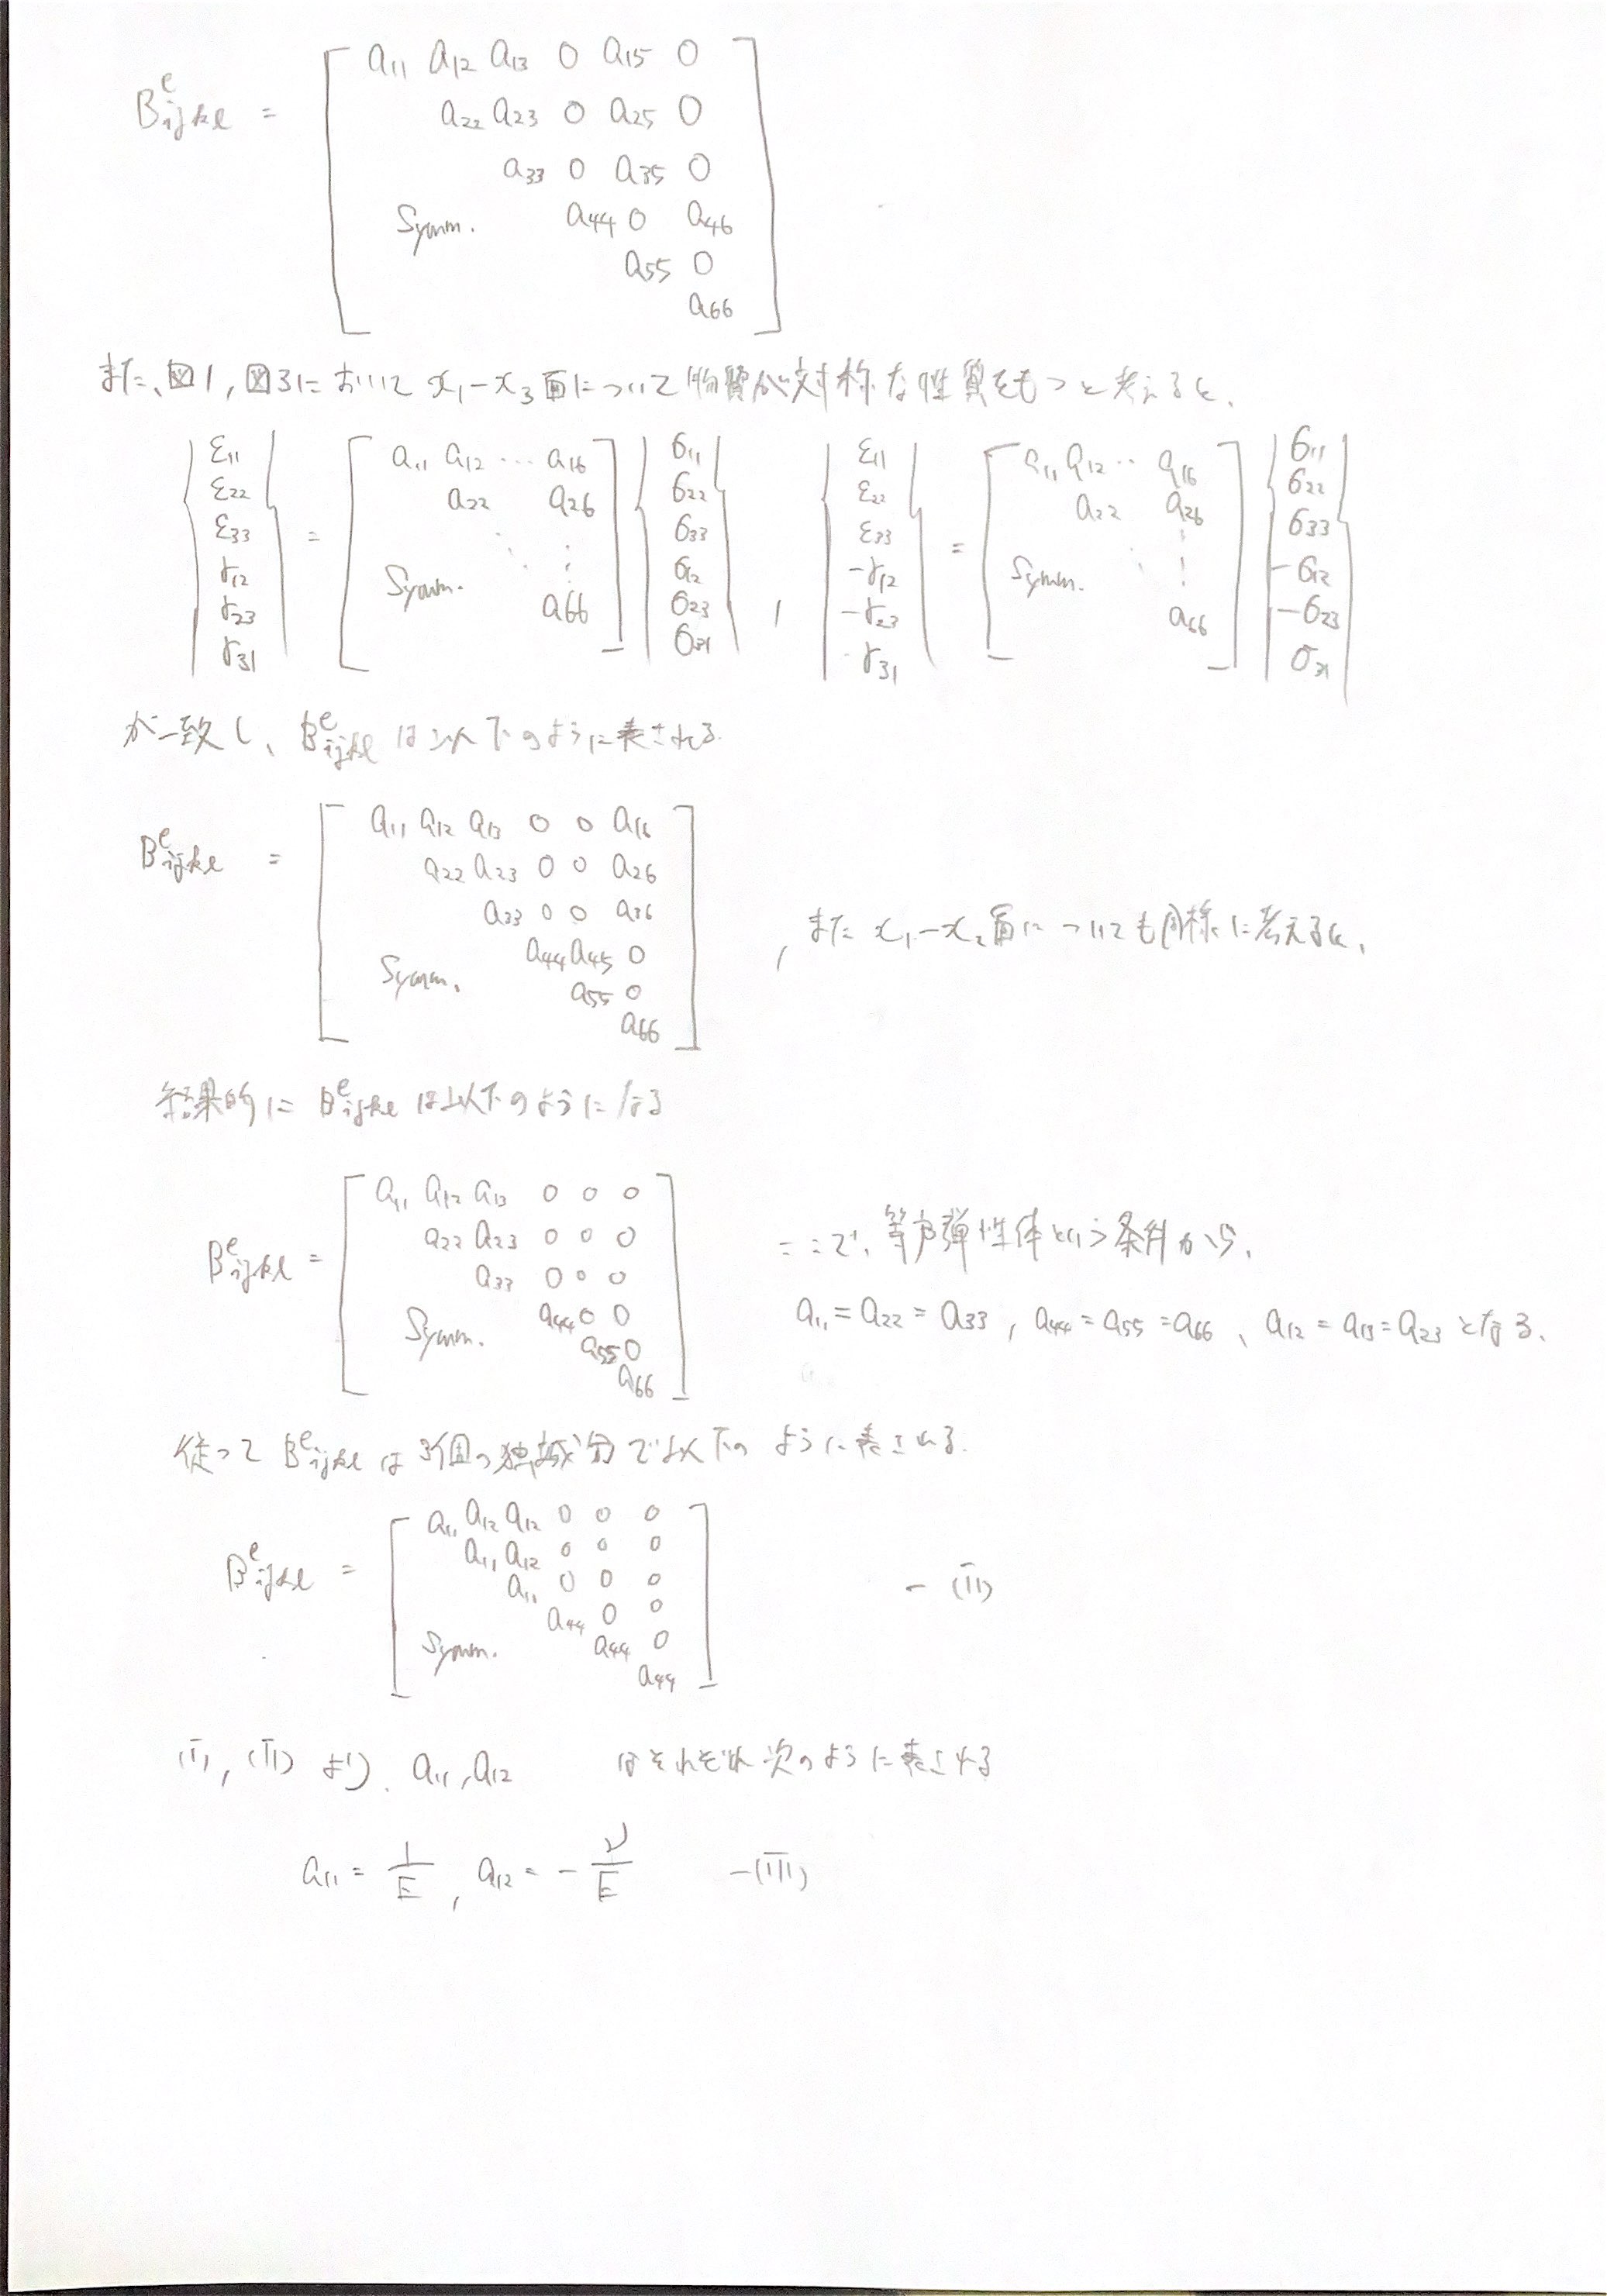 B^e_ijkl = [ a11 a12 a13 0 a15 0
a22 a23 0 a25 0
a33 0 a35 0
Symm. a44 0 a46
a55 0
a66 ]
また、図1, 図3において x1-x3 面について物質が対称な性質をもつと考えると、
{ ε11 ε22 ε33 γ12 γ23 γ31 } = [ a11 a12 … a16 a22 a26 ⋱ ⋮ Symm. a66 ] { σ11 σ22 σ33 σ12 σ23 σ31 } , { ε11 ε22 ε33 -γ12 -γ23 γ31 } = [ a11 a12 ‥ a16 a22 a26 ⋱ ⋮ Symm. a66 ] { σ11 σ22 σ33 -σ12 -σ23 σ31 }
が一致し、B^e_ijkl は以下のように表される.
B^e_ijkl = [ a11 a12 a13 0 0 a16
a22 a23 0 0 a26
a33 0 0 a36
a44 a45 0
Symm. a55 0
a66 ]
, また x1-x2 面についても同様に考えると、
結果的に B^e_ijkl は以下のようになる
B^e_ijkl = [ a11 a12 a13 0 0 0
a22 a23 0 0 0
a33 0 0 0
Symm. a44 0 0
a55 0
a66 ]
ここで、等方弾性体という条件から、
a11 = a22 = a33 , a44 = a55 = a66 、a12 = a13 = a23 となる、
従って B^e_ijkl は 3個の独立成分で以下のように表される.
B^e_ijkl = [ a11 a12 a12 0 0 0
a11 a12 0 0 0
a11 0 0 0
a44 0 0
Symm. a44 0
a44 ] - (ii)
(i), (ii) より、a11, a12 はそれぞれ次のように表される
a11 = 1/E , a12 = - ν/E -(iii)